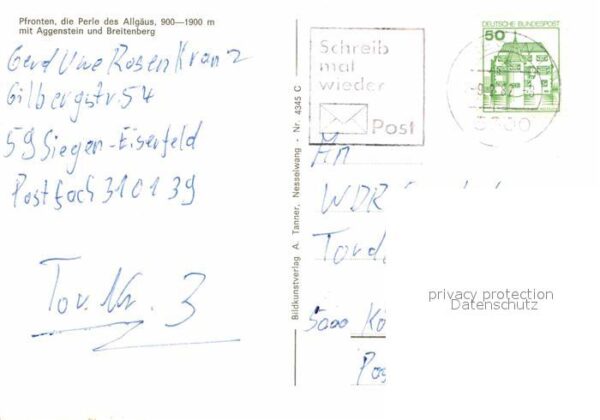 Pfronten, die Perle des Allgäus, 900—1900 m
mit Aggenstein und Breitenberg
Gerd Uwe Rosenkranz
Gilbergstr. 54
59 Siegen-Eiserfeld
Postfach 310139
Tor. Nr. 3
Bildkunstverlag A. Tanner, Nesselwang · Nr. 4345 C
Schreib
mal
wieder
Post
DEUTSCHE BUNDESPOST
50
An
WDR
Tord
5000 Kö
Pos
privacy protection
Datenschutz